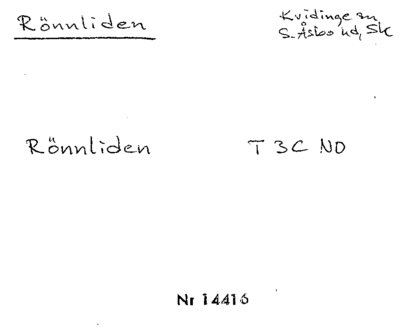 Rönnliden
Kvidinge sn
S. Åsbo hd, Sk
Rönnliden T 3C NO
Nr 14416